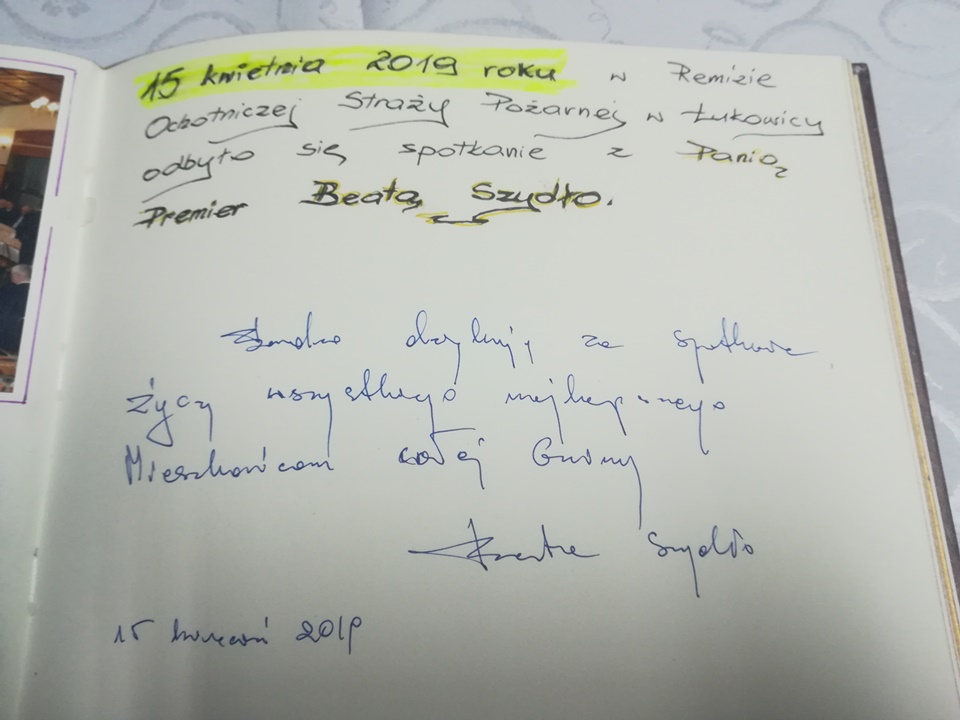 15 kwietnia 2019 roku w Remizie
Ochotniczej Straży Pożarnej w Łukowicy
odbyło się spotkanie z Panią
Premier Beatą Szydło.
Bardzo dziękuję za spotkanie
Życzę wszystkiego najlepszego
Mieszkańcom całej Gminy
Beata Szydło
15 kwiecień 2019